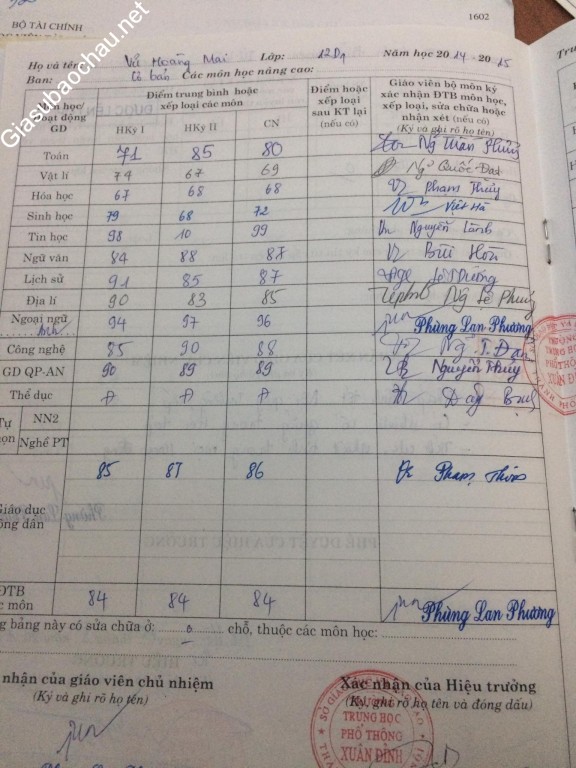 1602
BỘ TÀI CHÍNH
Giasubaochau.net
Họ và tên: Vũ Hoàng Mai Lớp: 12D1 Năm học 2014-2015
Ban: Cơ bản Các môn học nâng cao:
Môn học/ Hoạt động GD
Điểm trung bình hoặc xếp loại các môn
HKỳ I HKỳ II CN
Điểm hoặc xếp loại sau KT lại (nếu có)
Giáo viên bộ môn ký xác nhận ĐTB môn học, xếp loại, sửa chữa hoặc nhận xét (nếu có)
(Ký và ghi rõ họ tên)
Toán 71 85 80
Vật lí 74 67 69 Ng Quốc Đạt
Hóa học 67 68 68 Phạm Thủy
Sinh học 79 68 72 Việt Hà
Tin học 98 10 99 Nguyễn
Ngữ văn 84 88 87 Bùi
Lịch sử 91 85 87
Địa lí 90 83 85
Ngoại ngữ Anh 94 97 96 Phùng Lan Phương
Công nghệ 85 90 88
GD QP-AN 90 89 89 Nguyễn Thủy
Thể dục Đ Đ Đ
NN2
Nghề PT
85 87 86 Phạm
Giáo dục
công dân
ĐTB
các môn 84 84 84 Phùng Lan Phương
ng bảng này có sửa chữa ở: 0 chỗ, thuộc các môn học:
nhận của giáo viên chủ nhiệm
(Ký và ghi rõ họ tên)
Xác nhận của Hiệu trưởng
(Ký, ghi rõ họ tên và đóng dấu)
TRUNG HỌC
PHỔ THÔNG
XUÂN ĐỈNH